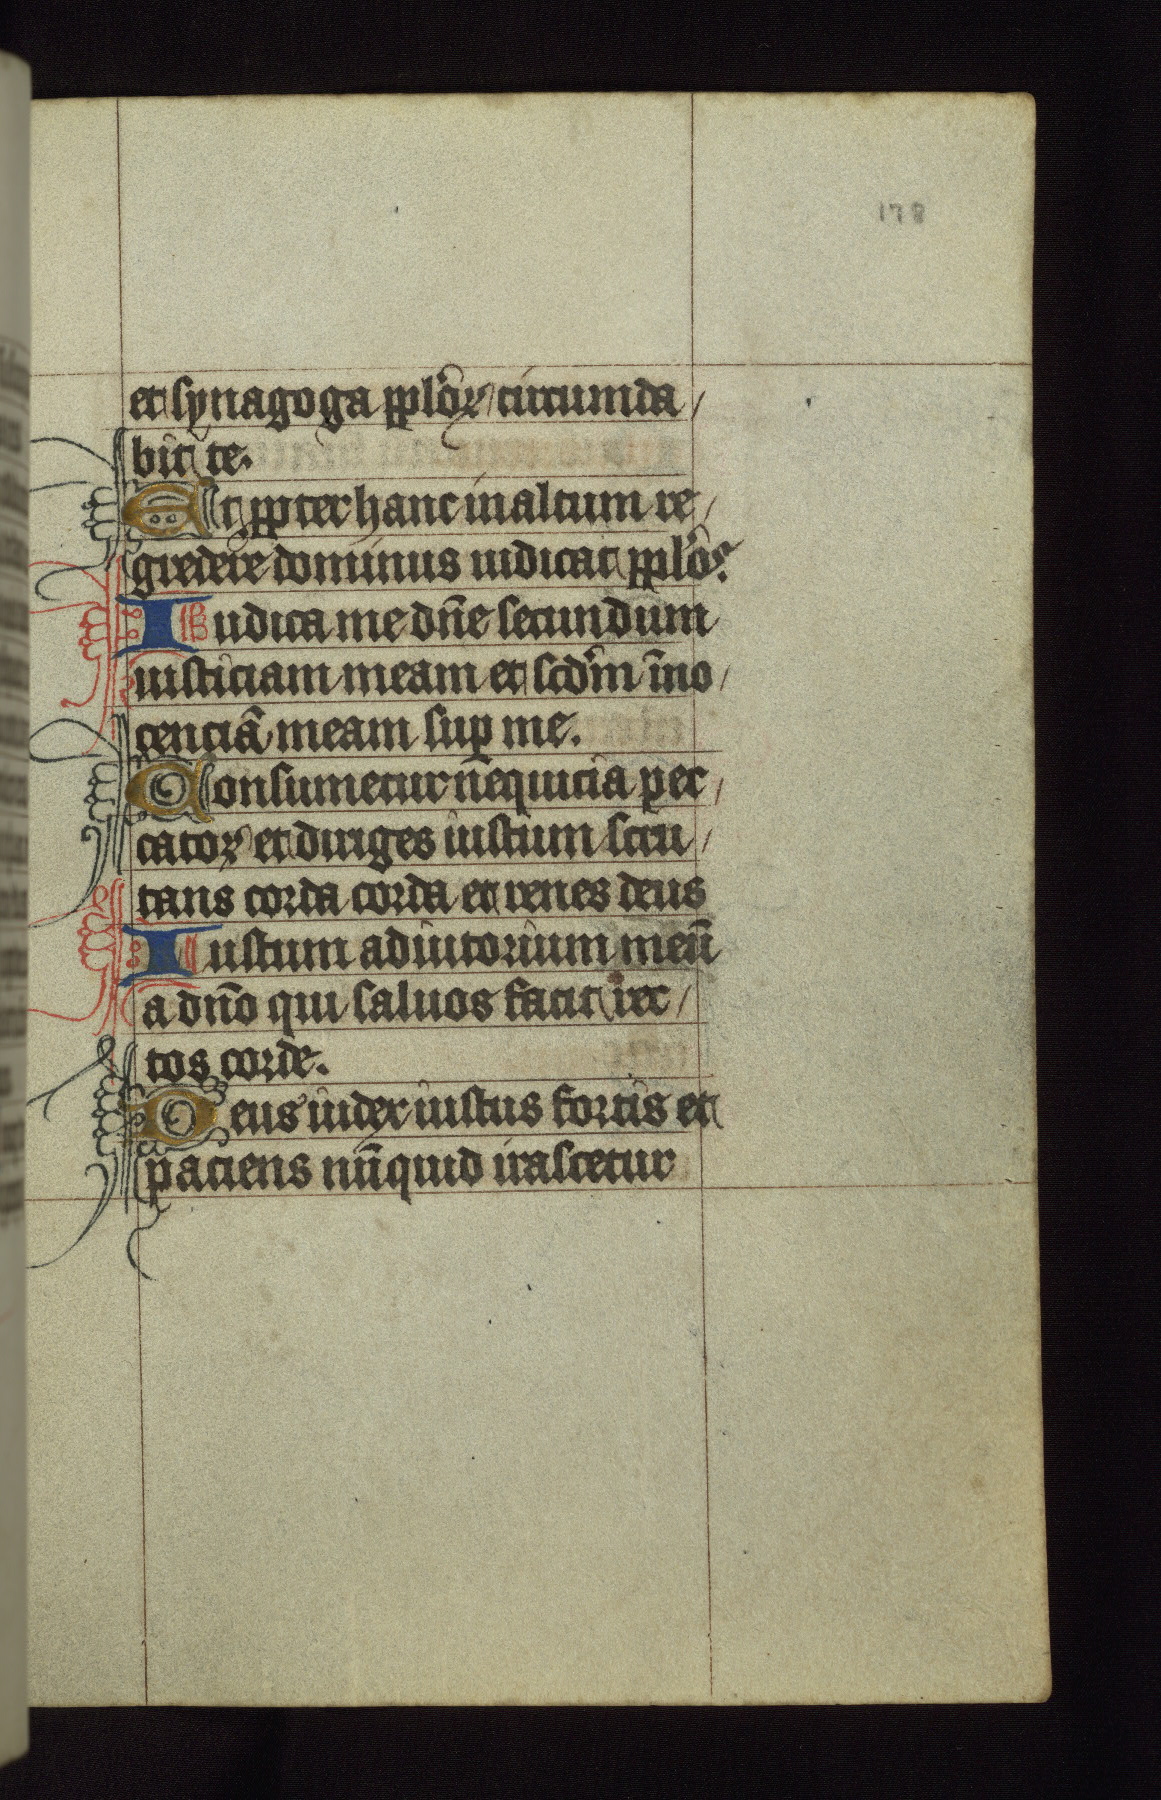 178
et synagoga pplo᷑ꝝ circumda/
bit te.
Et ppter hanc in altum re/
gredere dominus iudicat pplo᷑s.
Iudica me dn̄e secundum
iusticiam meam et scd᷑m īno/
cenciā meam sup me.
Consumetur nequicia pec/
catoꝝ et diriges iustum scru/
tans corda corda et renes deus
Iustum adiutorium meū
a dn̄o qui saluos facit rec/
tos corde.
Deus iudex iustus fortis et
paciens nūquid irascetur